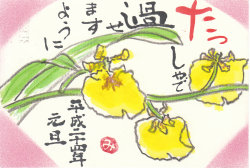 たっ
しゃで
過
せ
ます
ように
平成二十四年
元旦
み